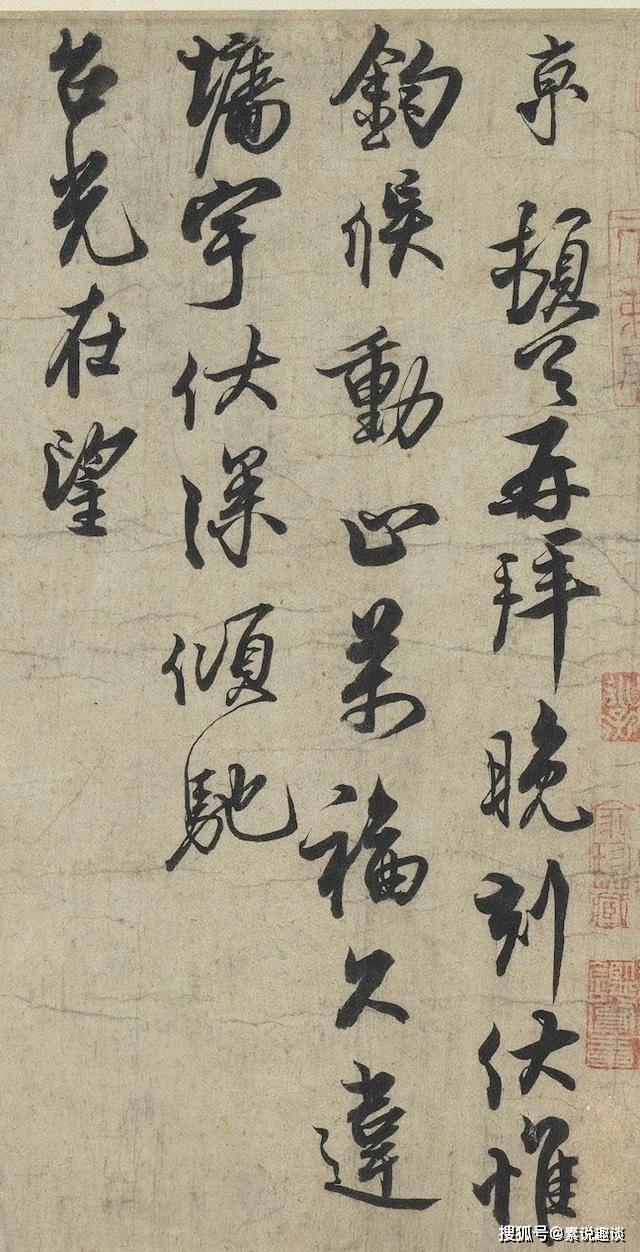 京頓首再拜晚刻伏惟
鈞候動止萬福久違
墻宇伏深傾馳
台光在望
搜狐号@素说趣谈